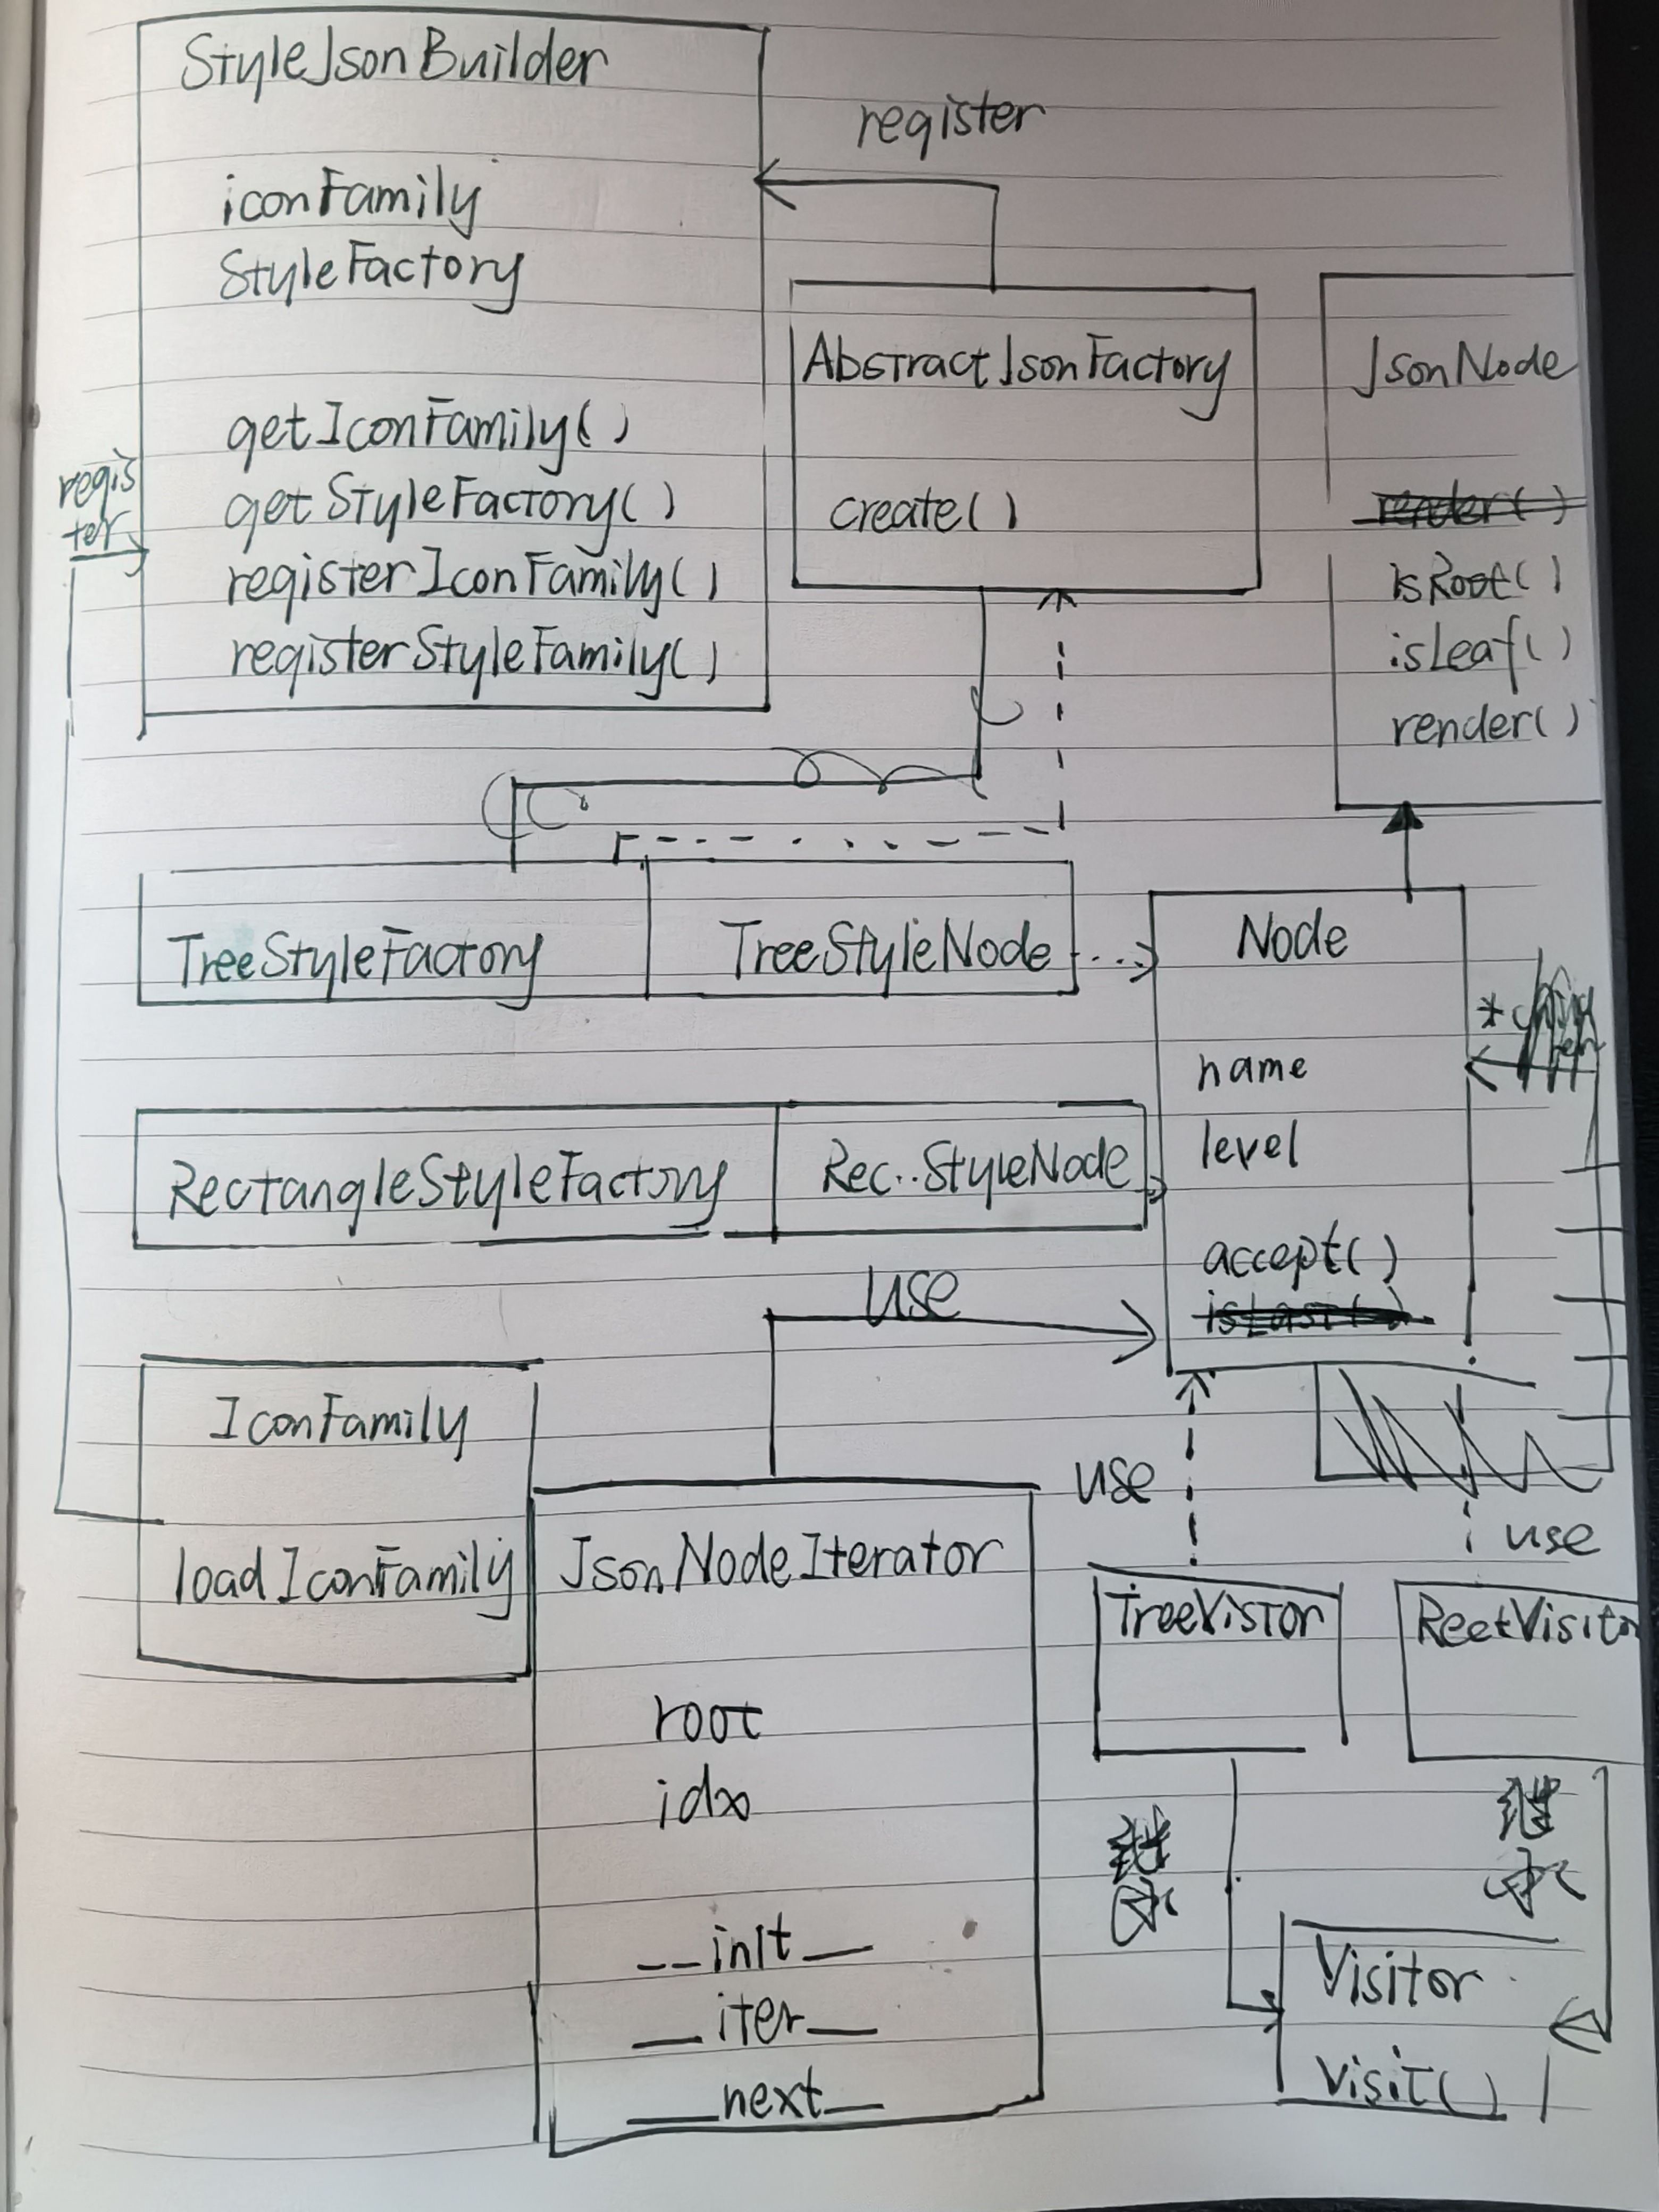 StyleJsonBuilder
iconFamily
StyleFactory
getIconFamily()
getStyleFactory()
registerIconFamily()
registerStyleFamily()
register
regis
ter
AbstractJsonFactory
create()
JsonNode
render()
isRoot()
isLeaf()
render()
TreeStyleFactory
TreeStyleNode
Node
name
level
accept()
isLast()
*
RectangleStyleFactory
Rec..StyleNode
use
IconFamily
loadIconFamily
JsonNodeIterator
root
idx
__init__
__iter__
__next__
use
use
TreeVistor
RectVisitor
继
承
继
承
Visitor
Visit()